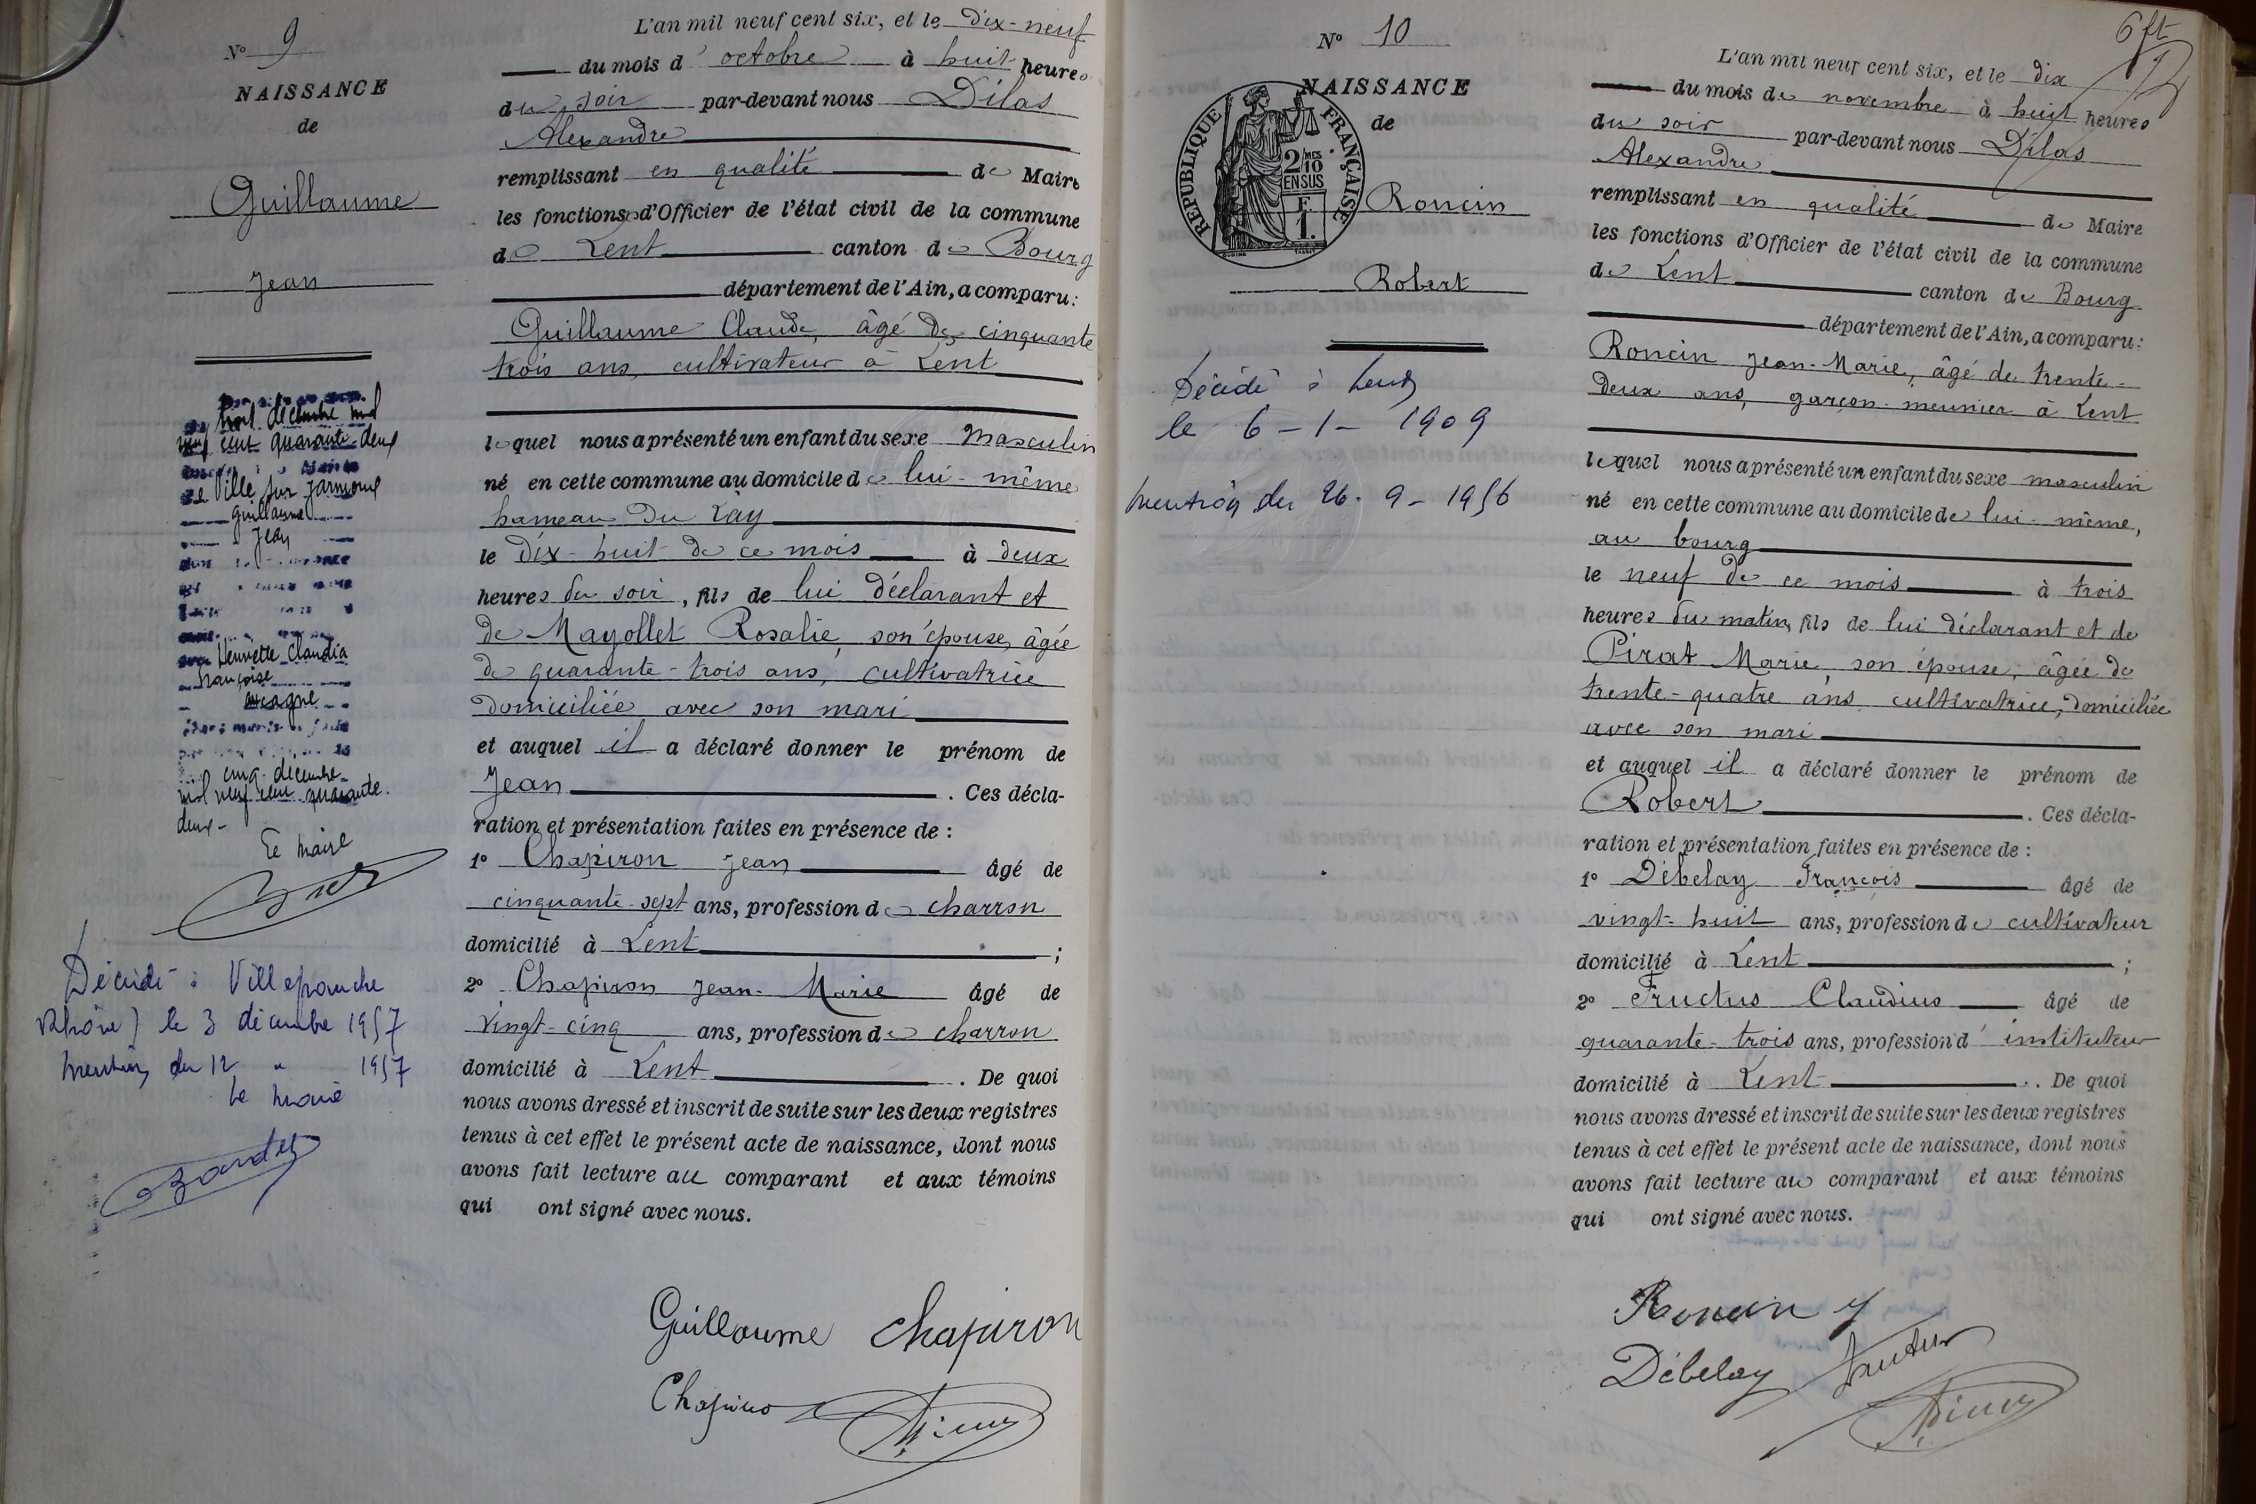 N° 9
NAISSANCE
de
Guillaume
Jean
trois décembre mil
neuf cent quarante deux
Ville sur Jarnioux
Guillaume
Jean
Henriette Claudia
Françoise
cinq décembre
mil neuf cent quarante
deux
Le maire
Décédé à Villefranche
(Rhône) le 3 décembre 1957
Mention du 12 " 1957
Le maire
L'an mil neuf cent six, et le dix-neuf
du mois d'octobre à huit heures
du soir par-devant nous Dilas
Alexandre
remplissant en qualité de Maire
les fonctions d'Officier de l'état civil de la commune
de Lent canton de Bourg
département de l'Ain, a comparu :
Guillaume Claude, âgé de cinquante
trois ans, cultivateur à Lent
lequel nous a présenté un enfant du sexe masculin
né en cette commune au domicile de lui-même
hameau du Lay
le dix-huit de ce mois à deux
heures du soir, fils de lui déclarant et
de Mayollet Rosalie, son épouse, âgée
de quarante-trois ans, cultivatrice
domiciliée avec son mari
et auquel il a déclaré donner le prénom de
Jean. Ces décla-
ration et présentation faites en présence de :
1° Chapiron Jean âgé de
cinquante-sept ans, profession de charron
domicilié à Lent ;
2° Chapiron Jean-Marie âgé de
vingt-cinq ans, profession de charron
domicilié à Lent. De quoi
nous avons dressé et inscrit de suite sur les deux registres
tenus à cet effet le présent acte de naissance, dont nous
avons fait lecture au comparant et aux témoins
qui ont signé avec nous.
Guillaume Chapiron
Chapiron
6 ft
N° 10
NAISSANCE
de
RÉPUBLIQUE FRANÇAISE
2/10 MES
EN SUS
F.
1.
Roncin
Robert
Décédé à Lent
le 6-1-1909
Mention du 26-9-1956
L'an mil neuf cent six, et le dix
du mois de novembre à huit heures
du soir par-devant nous Dilas
Alexandre
remplissant en qualité de Maire
les fonctions d'Officier de l'état civil de la commune
de Lent canton de Bourg
département de l'Ain, a comparu :
Roncin Jean-Marie, âgé de trente-
deux ans, garçon-meunier à Lent
lequel nous a présenté un enfant du sexe masculin
né en cette commune au domicile de lui-même,
au bourg
le neuf de ce mois à trois
heures du matin, fils de lui déclarant et de
Pirat Marie, son épouse, âgée de
trente-quatre ans, cultivatrice, domiciliée
avec son mari
et auquel il a déclaré donner le prénom de
Robert. Ces décla-
ration et présentation faites en présence de :
1° Débelay François âgé de
vingt-huit ans, profession de cultivateur
domicilié à Lent ;
2° Fructus Claudius âgé de
quarante-trois ans, profession d'instituteur
domicilié à Lent. De quoi
nous avons dressé et inscrit de suite sur les deux registres
tenus à cet effet le présent acte de naissance, dont nous
avons fait lecture au comparant et aux témoins
qui ont signé avec nous.
Roncin J
Débelay Fructus